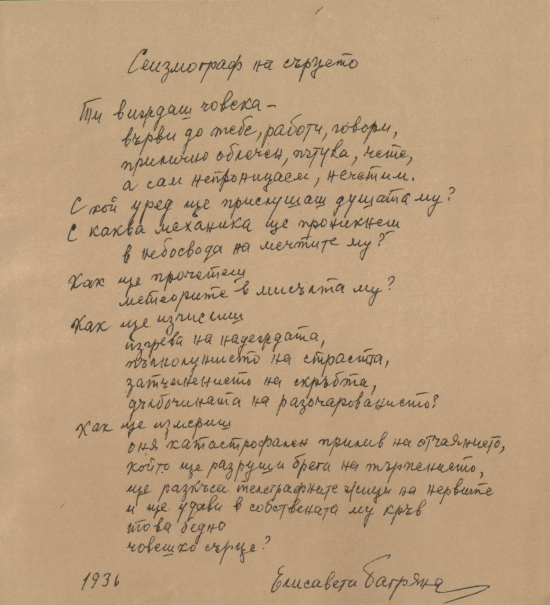 Сеизмограф на сърцето
Ти виждаш човека –
върви до тебе, работи, говори,
прилично облечен, пътува, чете,
а сам непроницаем, нечетим.
С кой уред ще прислушаш душата му?
С каква механика ще проникнеш
в небосвода на мечтите му?
Как ще прочетеш
метеорите в мисълта му?
Как ще изчислиш
изгрева на надеждата,
пълнолунието на страстта,
затъмнението на скръбта,
дълбочината на разочарованието?
Как ще измериш
оня катастрофален прилив на отчаянието,
който ще разруши брега на търпението,
ще разкъса телеграфните жици на нервите
и ще удави в собствената му кръв
това бедно
човешко сърце?
1936
Елисавета Багряна